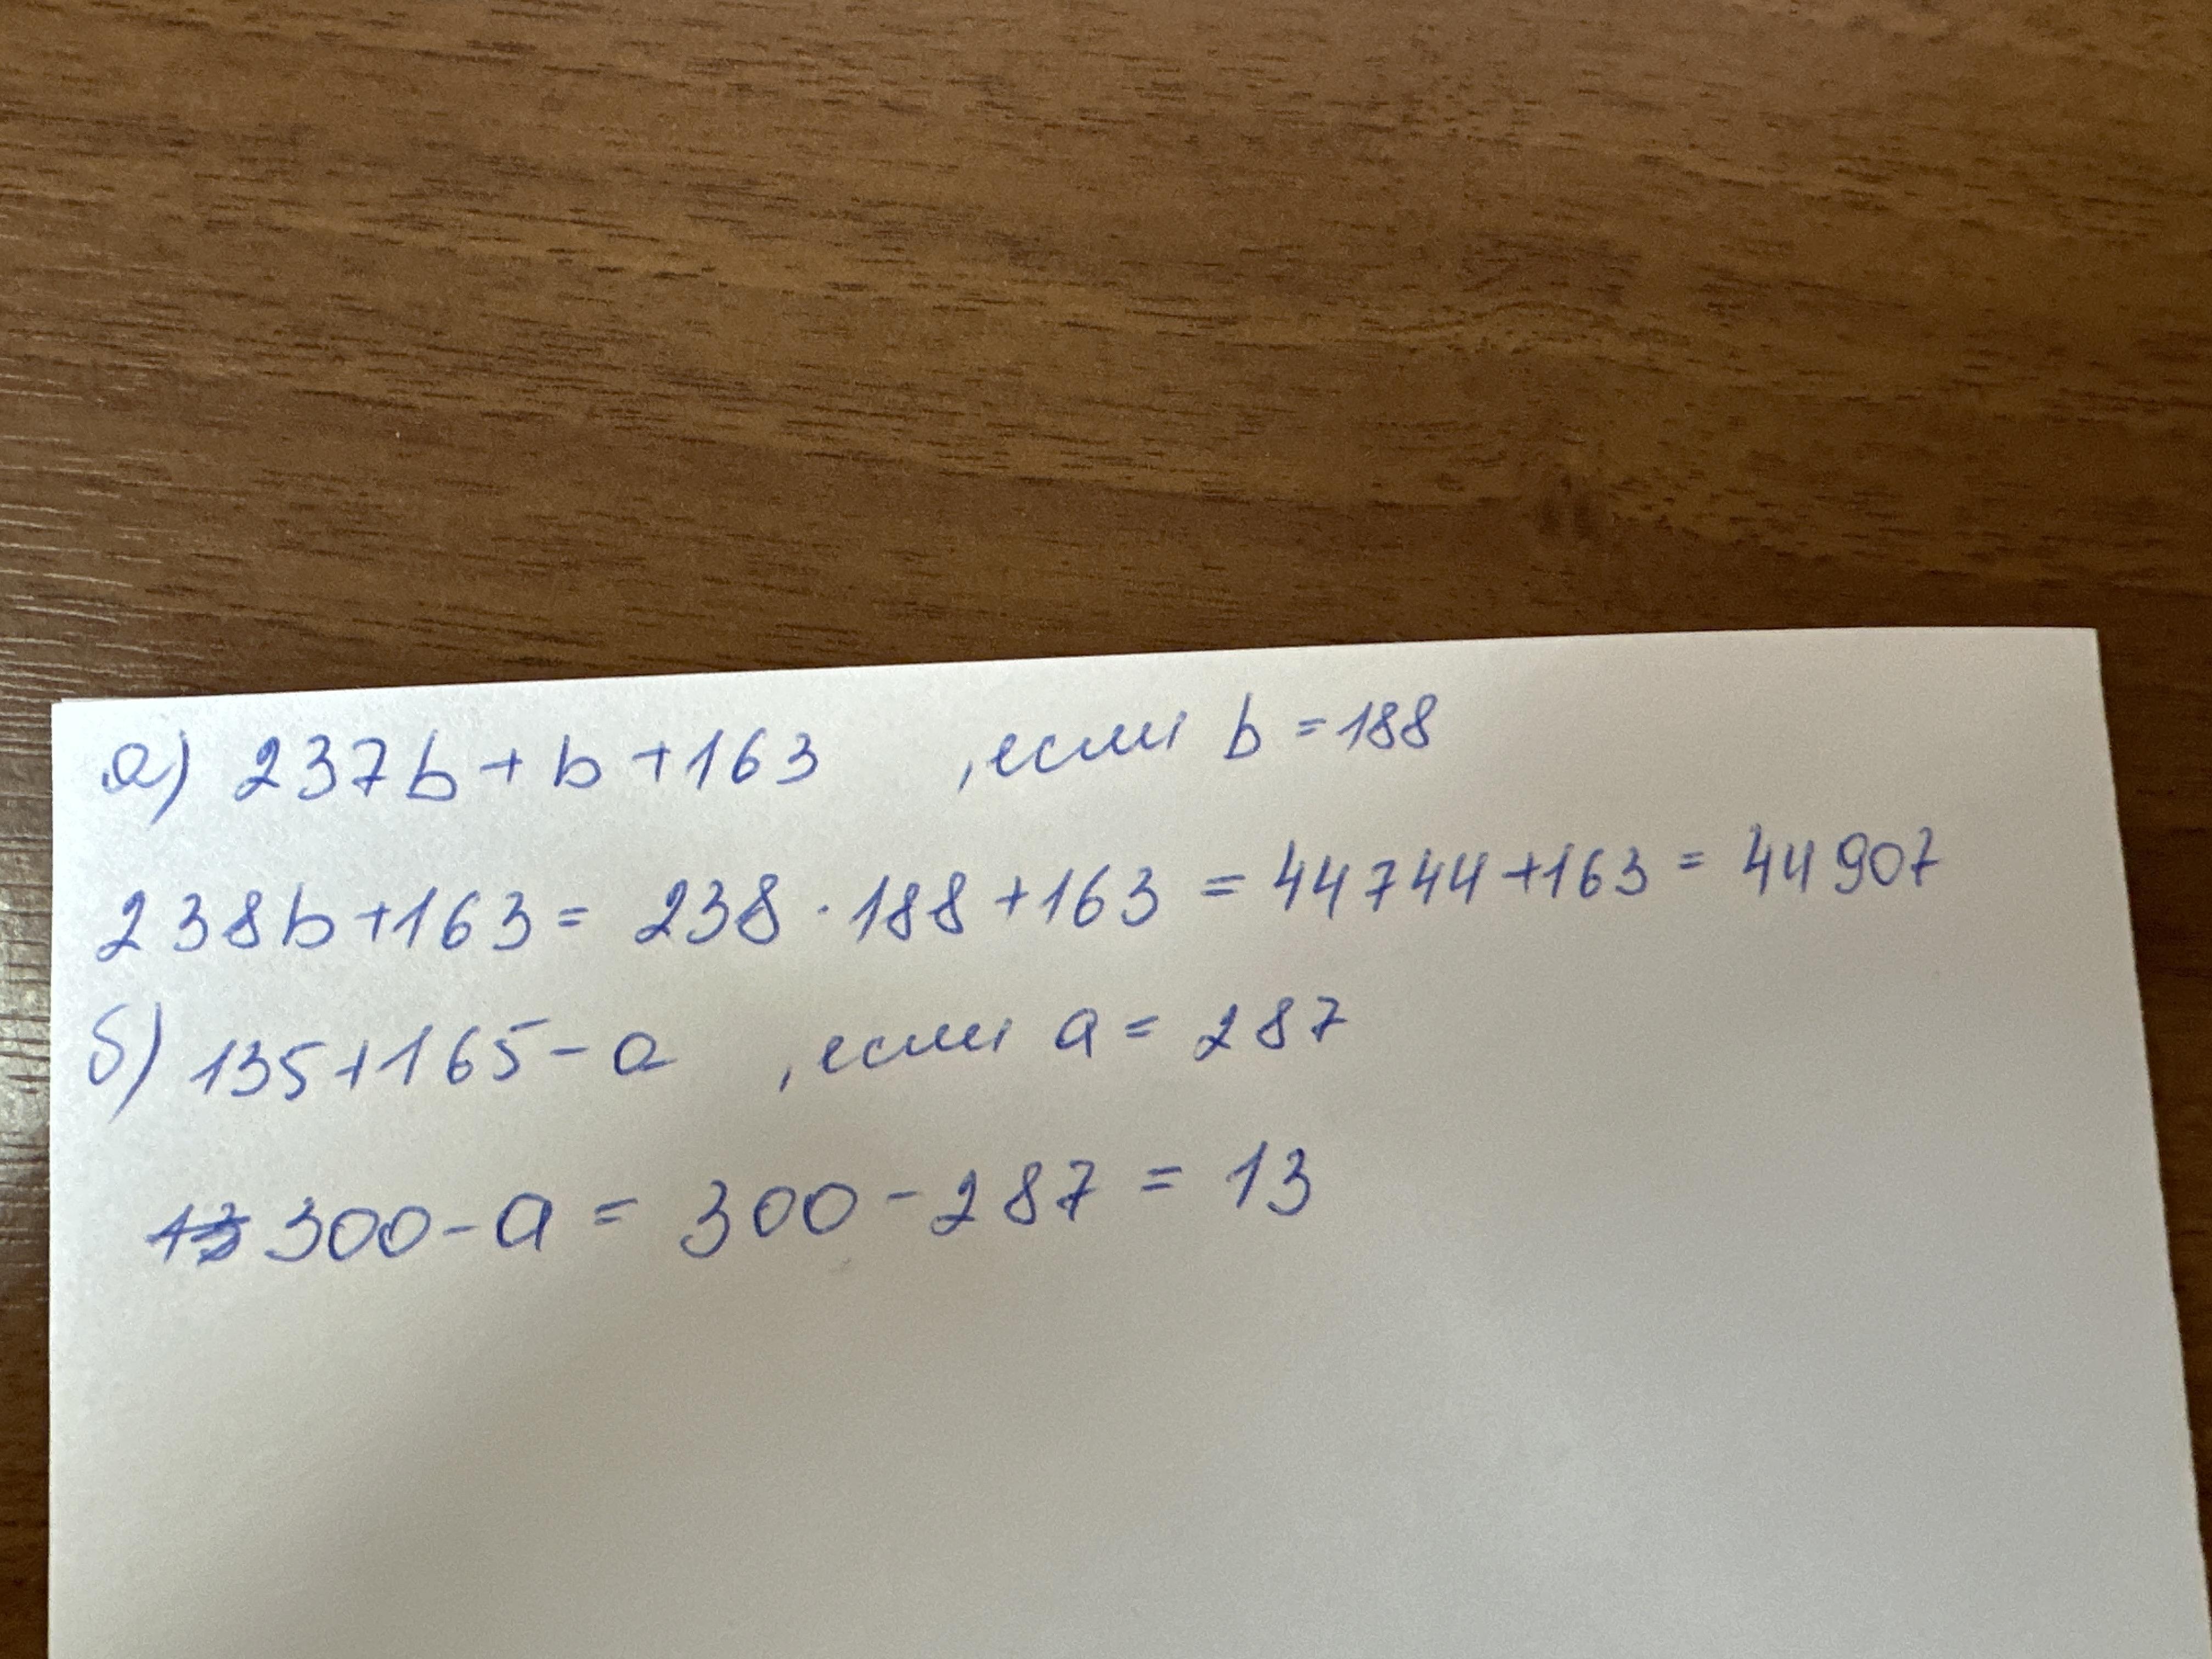 а) 237b + b + 163 , если b = 188
238b + 163 = 238 · 188 + 163 = 44744 + 163 = 44907
б) 135 + 165 - a , если a = 287
300 - a = 300 - 287 = 13